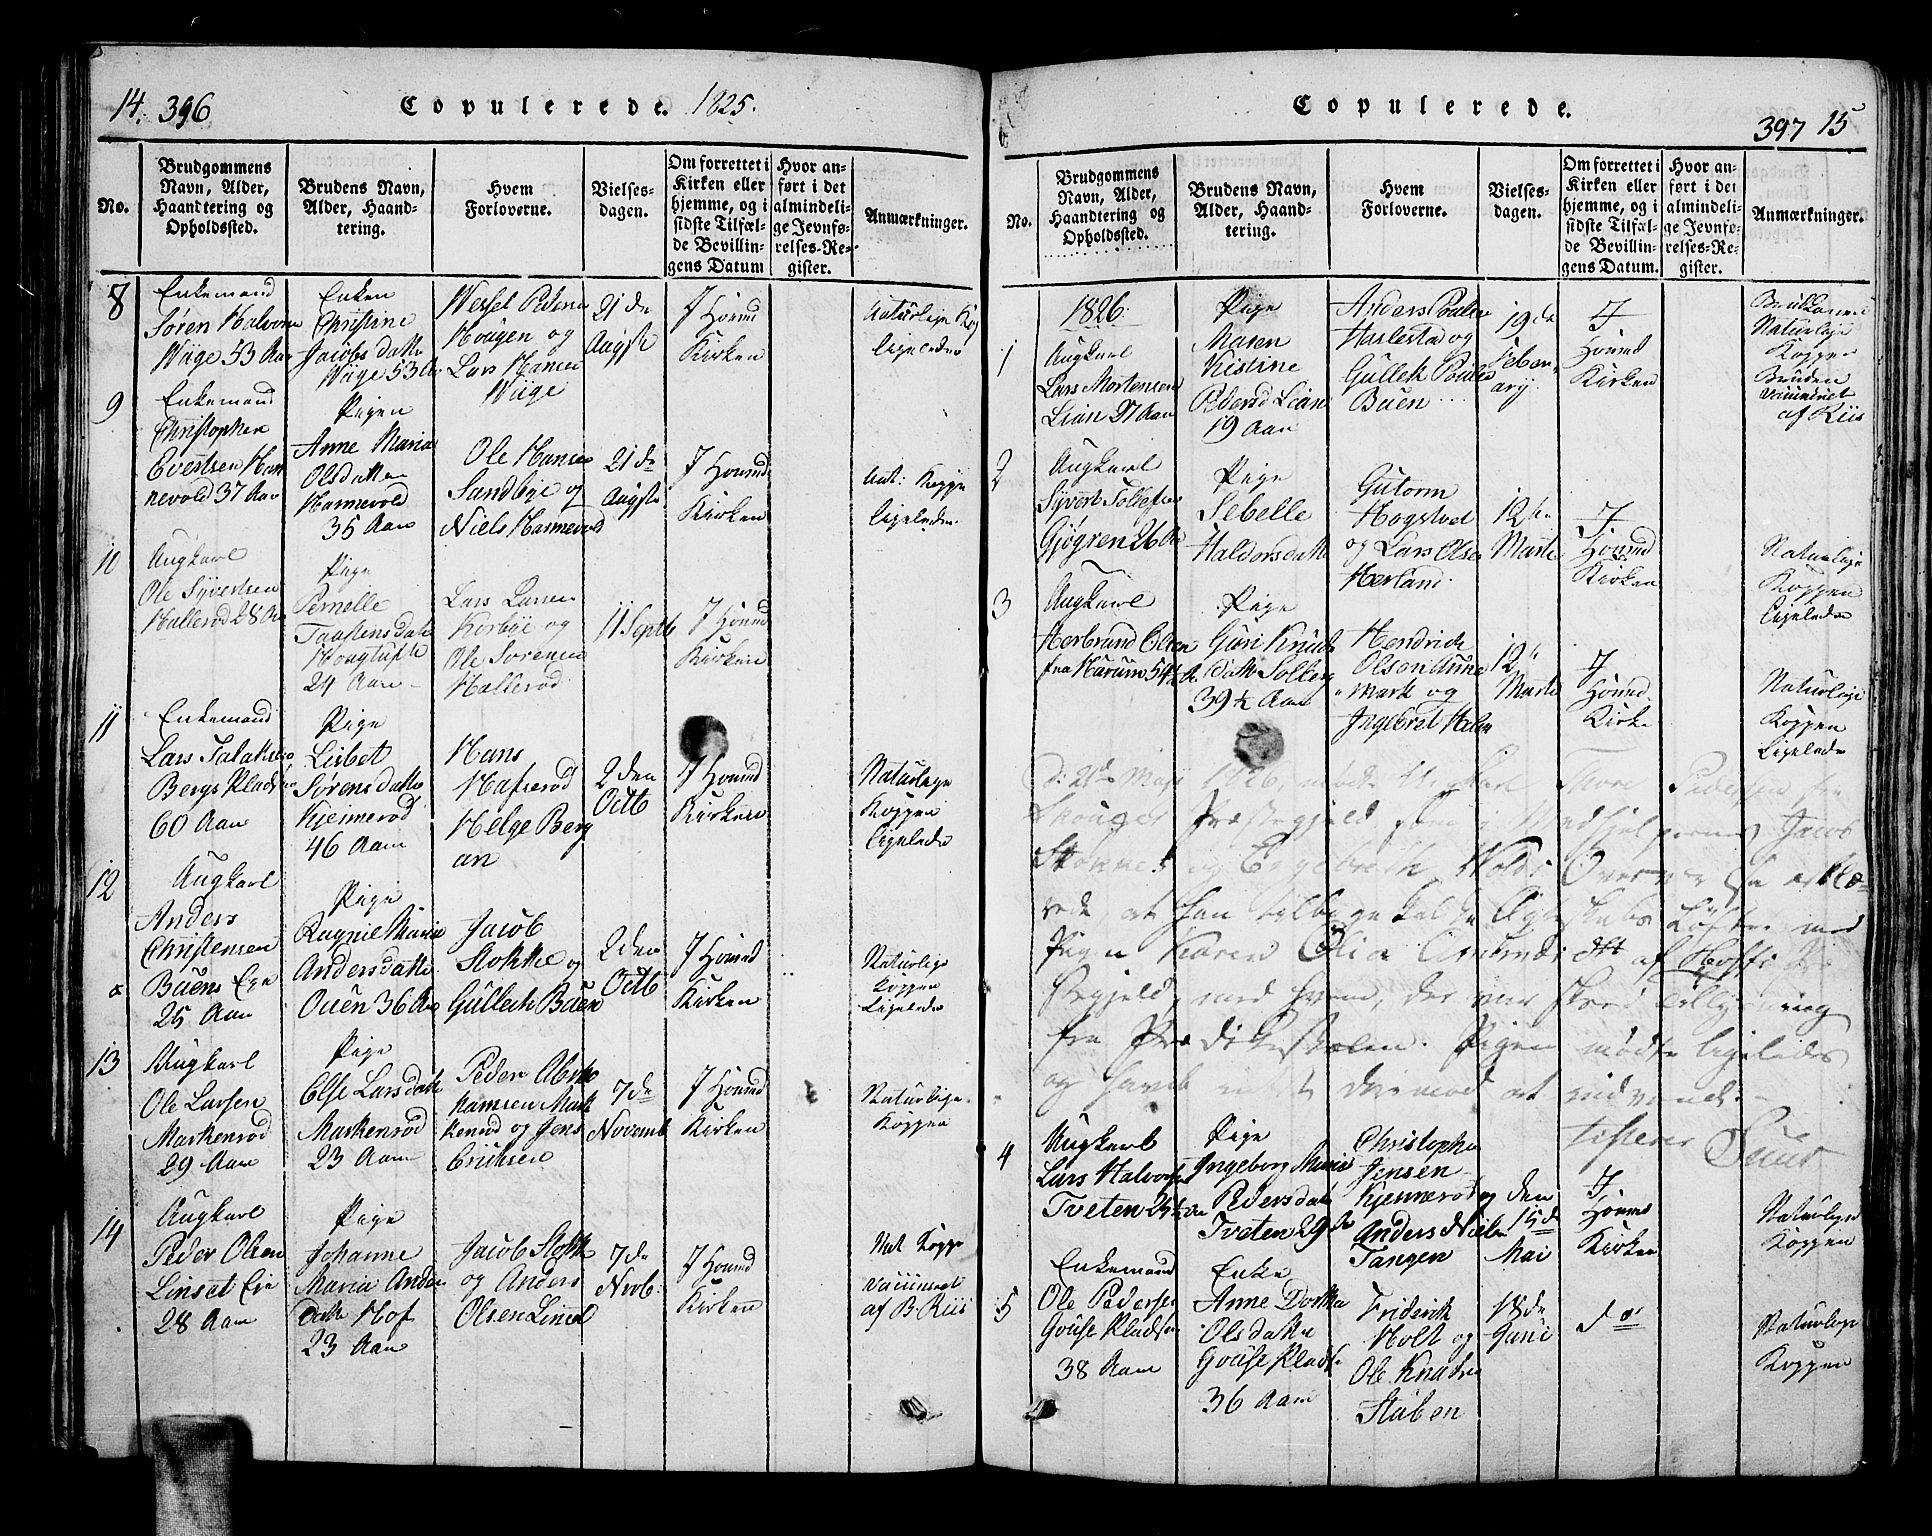 14. 396
Copulerede. 1825.
No.
Brudgommens
Navn, Alder,
Haandtering og
Opholdssted.
Brudens Navn,
Alder, Haand-
tering.
Hvem
Forloverne.
Vielses-
dagen.
Om forrettet i
Kirken eller
hjemme, og i
sidste Tilfæl-
de Bevillin-
gens Datum
Hvor an-
ført i det
almindeli-
ge Jevnfø-
relses-Re-
gister.
Anmærkninger.
8
Enkemand
Søren Halvorsen
Wiige 53 Aar
Enken
Christine
Jacobsdatte
Wiige 53 A.
Wessel Pedersen
Hougen og
Lars Hansen
Wiige
21de
Augste
I Hovind
Kirken
Naturlige Kop
Ligeledes
9
Enkemand
Christopher
Evertsen Har
nevold 37 Aar
Pigen
Anne Maria
Olsdatter
Harnevold
35 Aar
Ole Hansen
Sandbye og
Niels Harnevold
21de
Augste
I Hovind
Kirken
Nat: Koppe
Ligeledes
10
Ungkarl
Ole Syvertsen
Hallerød 28 Aar
Pige
Pernelle
Haugtufte
24 Aar
Lars Larsen
Korbye og
Ole Sørensen
Hallerød
11 Septb
I Hovind
Kirken
11
Enkemand
Lars
Bergs Pladsen
60 Aar
Pige
Lisbet
Sørensdatte
Kjemerød
46 Aar
Hans
Hafserød
Helge Berg
an
2den
Octb
I Hovind
Kirken
Naturlige
Koppen
Ligeledes
12
Ungkarl
Anders
Christensen
Buens Eye
25 Aar
Pige
Ragnil Maria
Andersdatte
Ouen 36 Aar
Jacob
Stokke og
Gullech Buen
2den
Octb
I Hovind
Kirken
Naturlige
Koppen
Ligeledes
13
Ungkarl
Ole Larsen
Markerrød
29 Aar
Pige
Else Larsdatte
Markerrød
23 Aar
Peder Abra
hamsen Mark
kerrød og Jens
Erichsen
7de
Novemb
I Hovind
Kirken
Naturlige
Koppen
14
Ungkarl
Peder Olsen
Linset Eie
28 Aar
Pige
Johanne
Maria Anders
datte Hof
23 Aar
Jacob Stokke
og Anders
Olsen Linset
7de
Novb:
I Hovind
Kirken
Nat Koppe
vaccineret
af B. Riis
Copulerede.
397 15
No.
Brudgommens
Navn, Alder,
Haandtering og
Opholdssted.
Brudens Navn,
Alder, Haand-
tering.
Hvem
Forloverne.
Vielses-
dagen.
Om forrettet i
Kirken eller
hjemme, og i
sidste Tilfæl-
de Bevillin-
gens Datum.
Hvor an-
ført i det
almindeli-
ge Jevnfø-
relses-Re-
gister.
Anmærkninger.
1826.
1
Ungkarl
Lars Mortensen
Lian 27 Aar
Pige
Maren
Kistine
Pedersd Lian
19 Aar
Anders Poulsen
Harlestad og
Gullek Poulsen
Buen
19de
Febru
ary
I
Hovind
Kirken
Naturlige
Koppen
Bruden
vaccineret
af Riis
2
Ungkarl
Syvert Tollefsen
Gjøgren 26 Aar
Pige
Sebelle
Haldorsdatte
Gutorm
Hogstvet
og Lars Olsen
Herland
12te
Marte
I
Hovind
Kirken
Naturlige
Koppen
Ligeledes
3
Ungkarl
Herbrand Olsen
fra Harum 54½
Pige
Guri Knuds
datte Solberg
39½ Aar
Hendrick
Olsen Anne
mark og
Ingebret
12te
Marte
I
Hovind
Kirke
Naturlige
Koppen
Ligeledes
D: 21de Maji 1826, mødte Tore Pedersen fra
Præstegjeld som i Medhjelpernes Jacob
Stokkes og Engebreth Holds Overvær
vede at han tilbage kaldte Ægteskabs Løfter med
Pigen Karen af Hoffs
stegjeld, med hvem, der var skeed Tillysning
fra Prædikestolen. Pigen mødte ligeledes
og havde intet derimod at indvende.
testerer
4
Ungkarl
Lars Halvorsen
Tveten
Pige
Ingeborg Maria
Pedersdatte
Tveten 29
Christopher
Jensen
Kjennerød og
Anders Nielsen
Tangen
den
15de
Mai
I
Hovind
Kirken
Naturlige
Koppen
5
Enkemand
Ole Pedersen
Gouse Pladsen
38 Aar
Enke
Anne Dorthea
Olsdatte
Gouse Plads
36 Aar
Friderik
Holt og
Ole Knudsen
Stuben
18de
Juni
do
Naturlige
Koppen